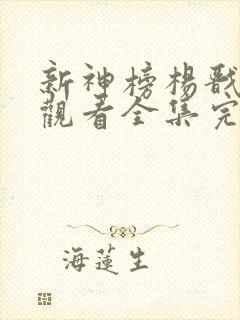 新神榜楊戩
觀看全集完
海蓮生